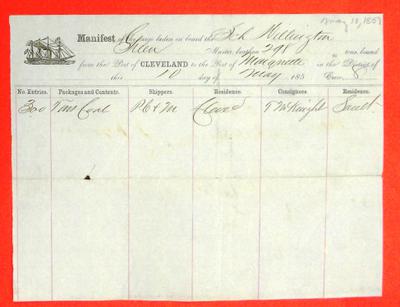 May 10, 1857
Manifest of Cargo laden on board the Sch Wellington
Master, burthen 298 Tons bound
from the Port of CLEVELAND to the Port of Marquette in the District of
this 10 day of May 185
No. Entries. Packages and Contents. Shippers. Residence. Consignees Residence.
300 Tons Coal P C & M Cleved T McKnight Sault